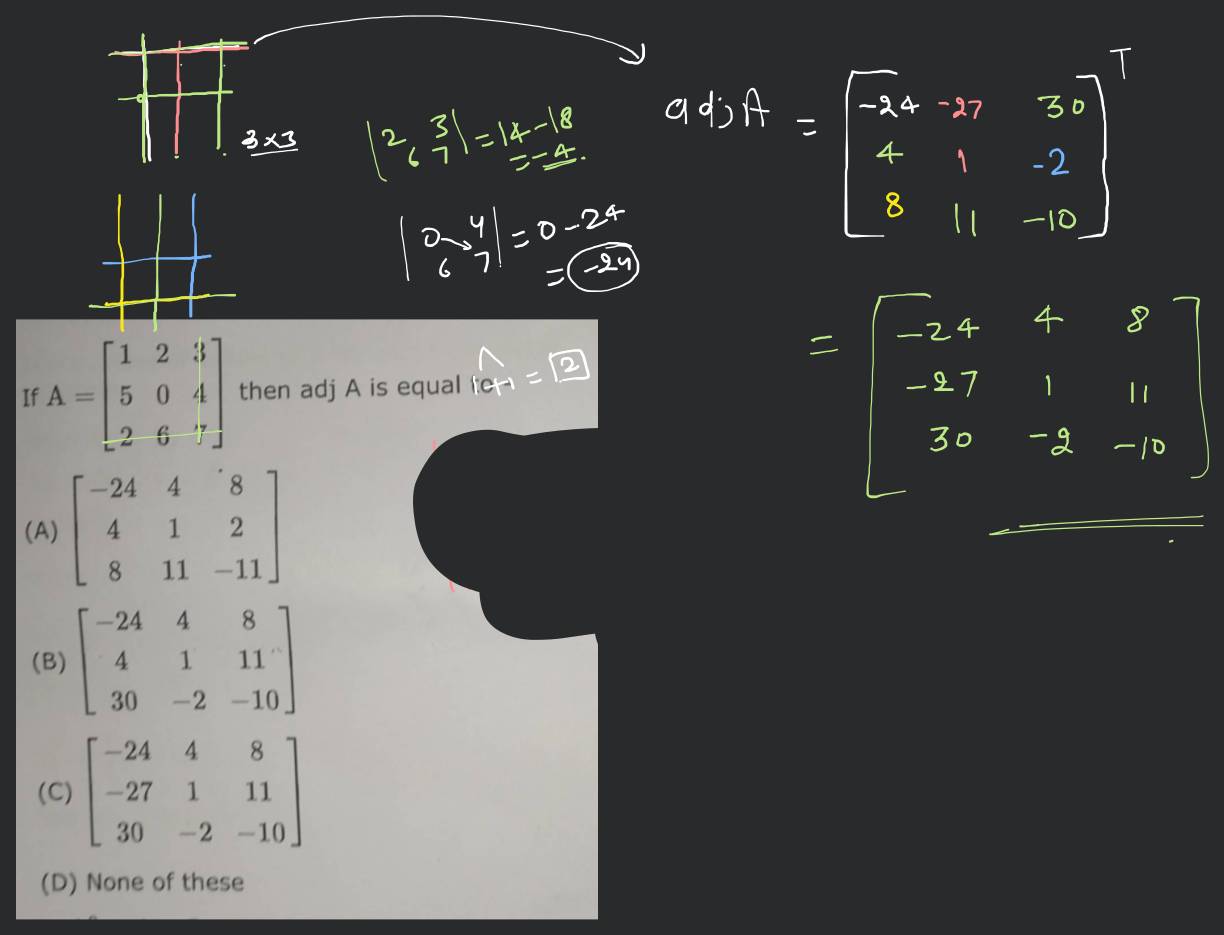 3×3
|2 3
6 7| = 14-18
= -4.
|0 4
6 7| = 0-24
= -24
adj A = [-24 -27 30
4 1 -2
8 11 -10] T
= [-24 4 8
-27 1 11
30 -2 -10]
If A = [1 2 3
5 0 4
2 6 7] then adj A is equal to
= 2
(A) [-24 4 8
4 1 2
8 11 -11]
(B) [-24 4 8
4 1 11
30 -2 -10]
(C) [-24 4 8
-27 1 11
30 -2 -10]
(D) None of these